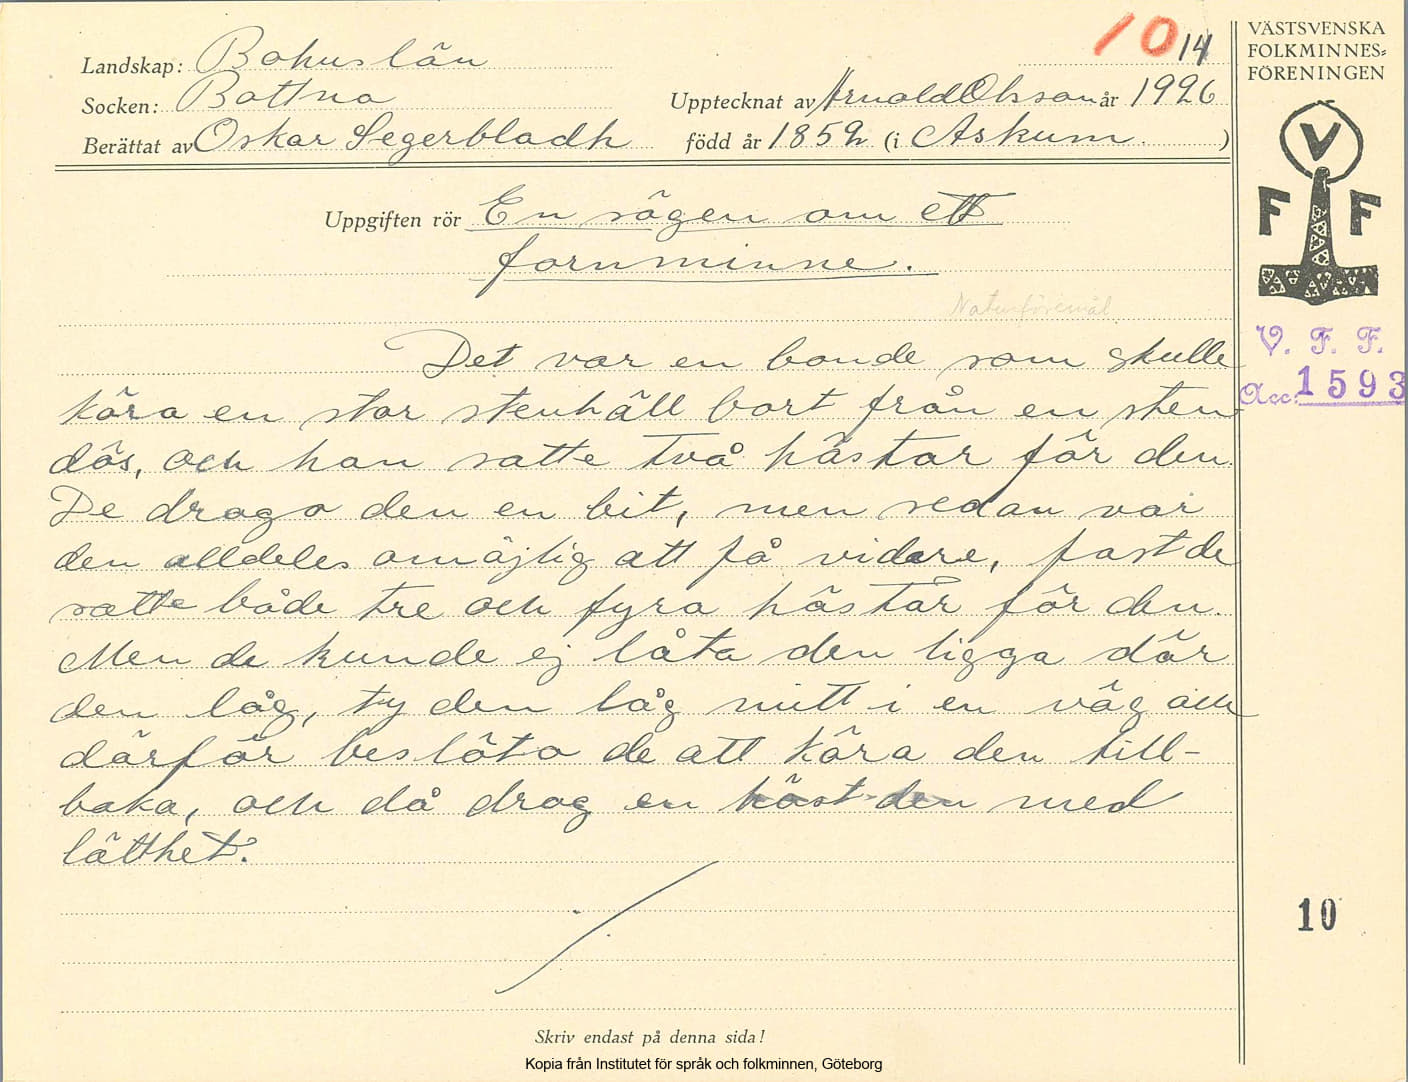 10 14
Landskap: Bohuslän
Socken: Bottna
Upptecknat av Arnold Olsson år 1926
Berättat av Oskar Segerbladh född år 1852 (i Askum.)
VÄSTSVENSKA
FOLKMINNES-
FÖRENINGEN
V
F F
Uppgiften rör En sägen om ett
fornminne.
Naturföremål
V. F. F.
Acc: 1593
Det var en bonde som skulle
köra en stor stenhäll bort från en sten
dös, och han satte två hästar för den.
De drogo den en bit, men sedan var
den alldeles omöjlig att få vidare, fast de
satte både tre och fyra hästar för den.
Men de kunde ej låta den ligga där
den låg, ty den låg mitt i en väg och
därför beslöto de att köra den till-
baka, och då drog en häst den med
lätthet.
10
Skriv endast på denna sida!
Kopia från Institutet för språk och folkminnen, Göteborg